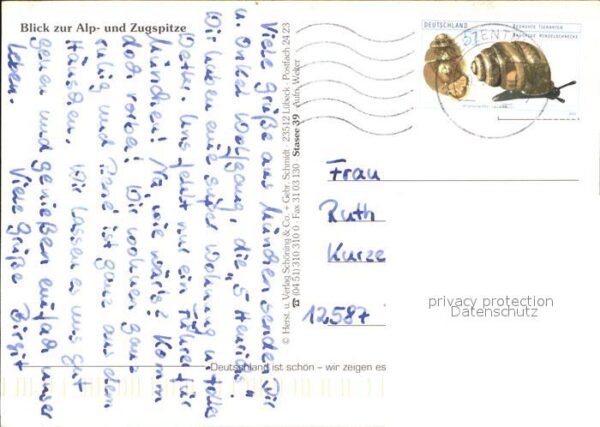 Blick zur Alp- und Zugspitze
Viele Grüße aus München senden Dir
u. Onkel Wolfgang, die "5 Henrichs".
Wir haben eine super Wohnung u. tolles
Wetter. Uns fehlt nur ein Führer für
München! Na, wie wär's? Komm
doch vorbei! Wir wohnen ganz
ruhig und René ist ganz aus dem
Häuschen. Wir lassen es uns gut
gehen und genießen einfach unser
Leben. Viele Grüße Birgit
© Herst. u. Verlag Schöning & Co. + Gebr. Schmidt · 23512 Lübeck · Postfach 24 23
☎ (04 51) 310 310 0 · Fax 31 03 130 · Stasee 39 Aufn. Welker
DEUTSCHLAND
BEDROHTE TIERARTEN
BAUCHIGE WINDELSCHNECKE
Frau
Ruth
Kurze
12587
privacy protection
Datenschutz
Deutschland ist schön – wir zeigen es